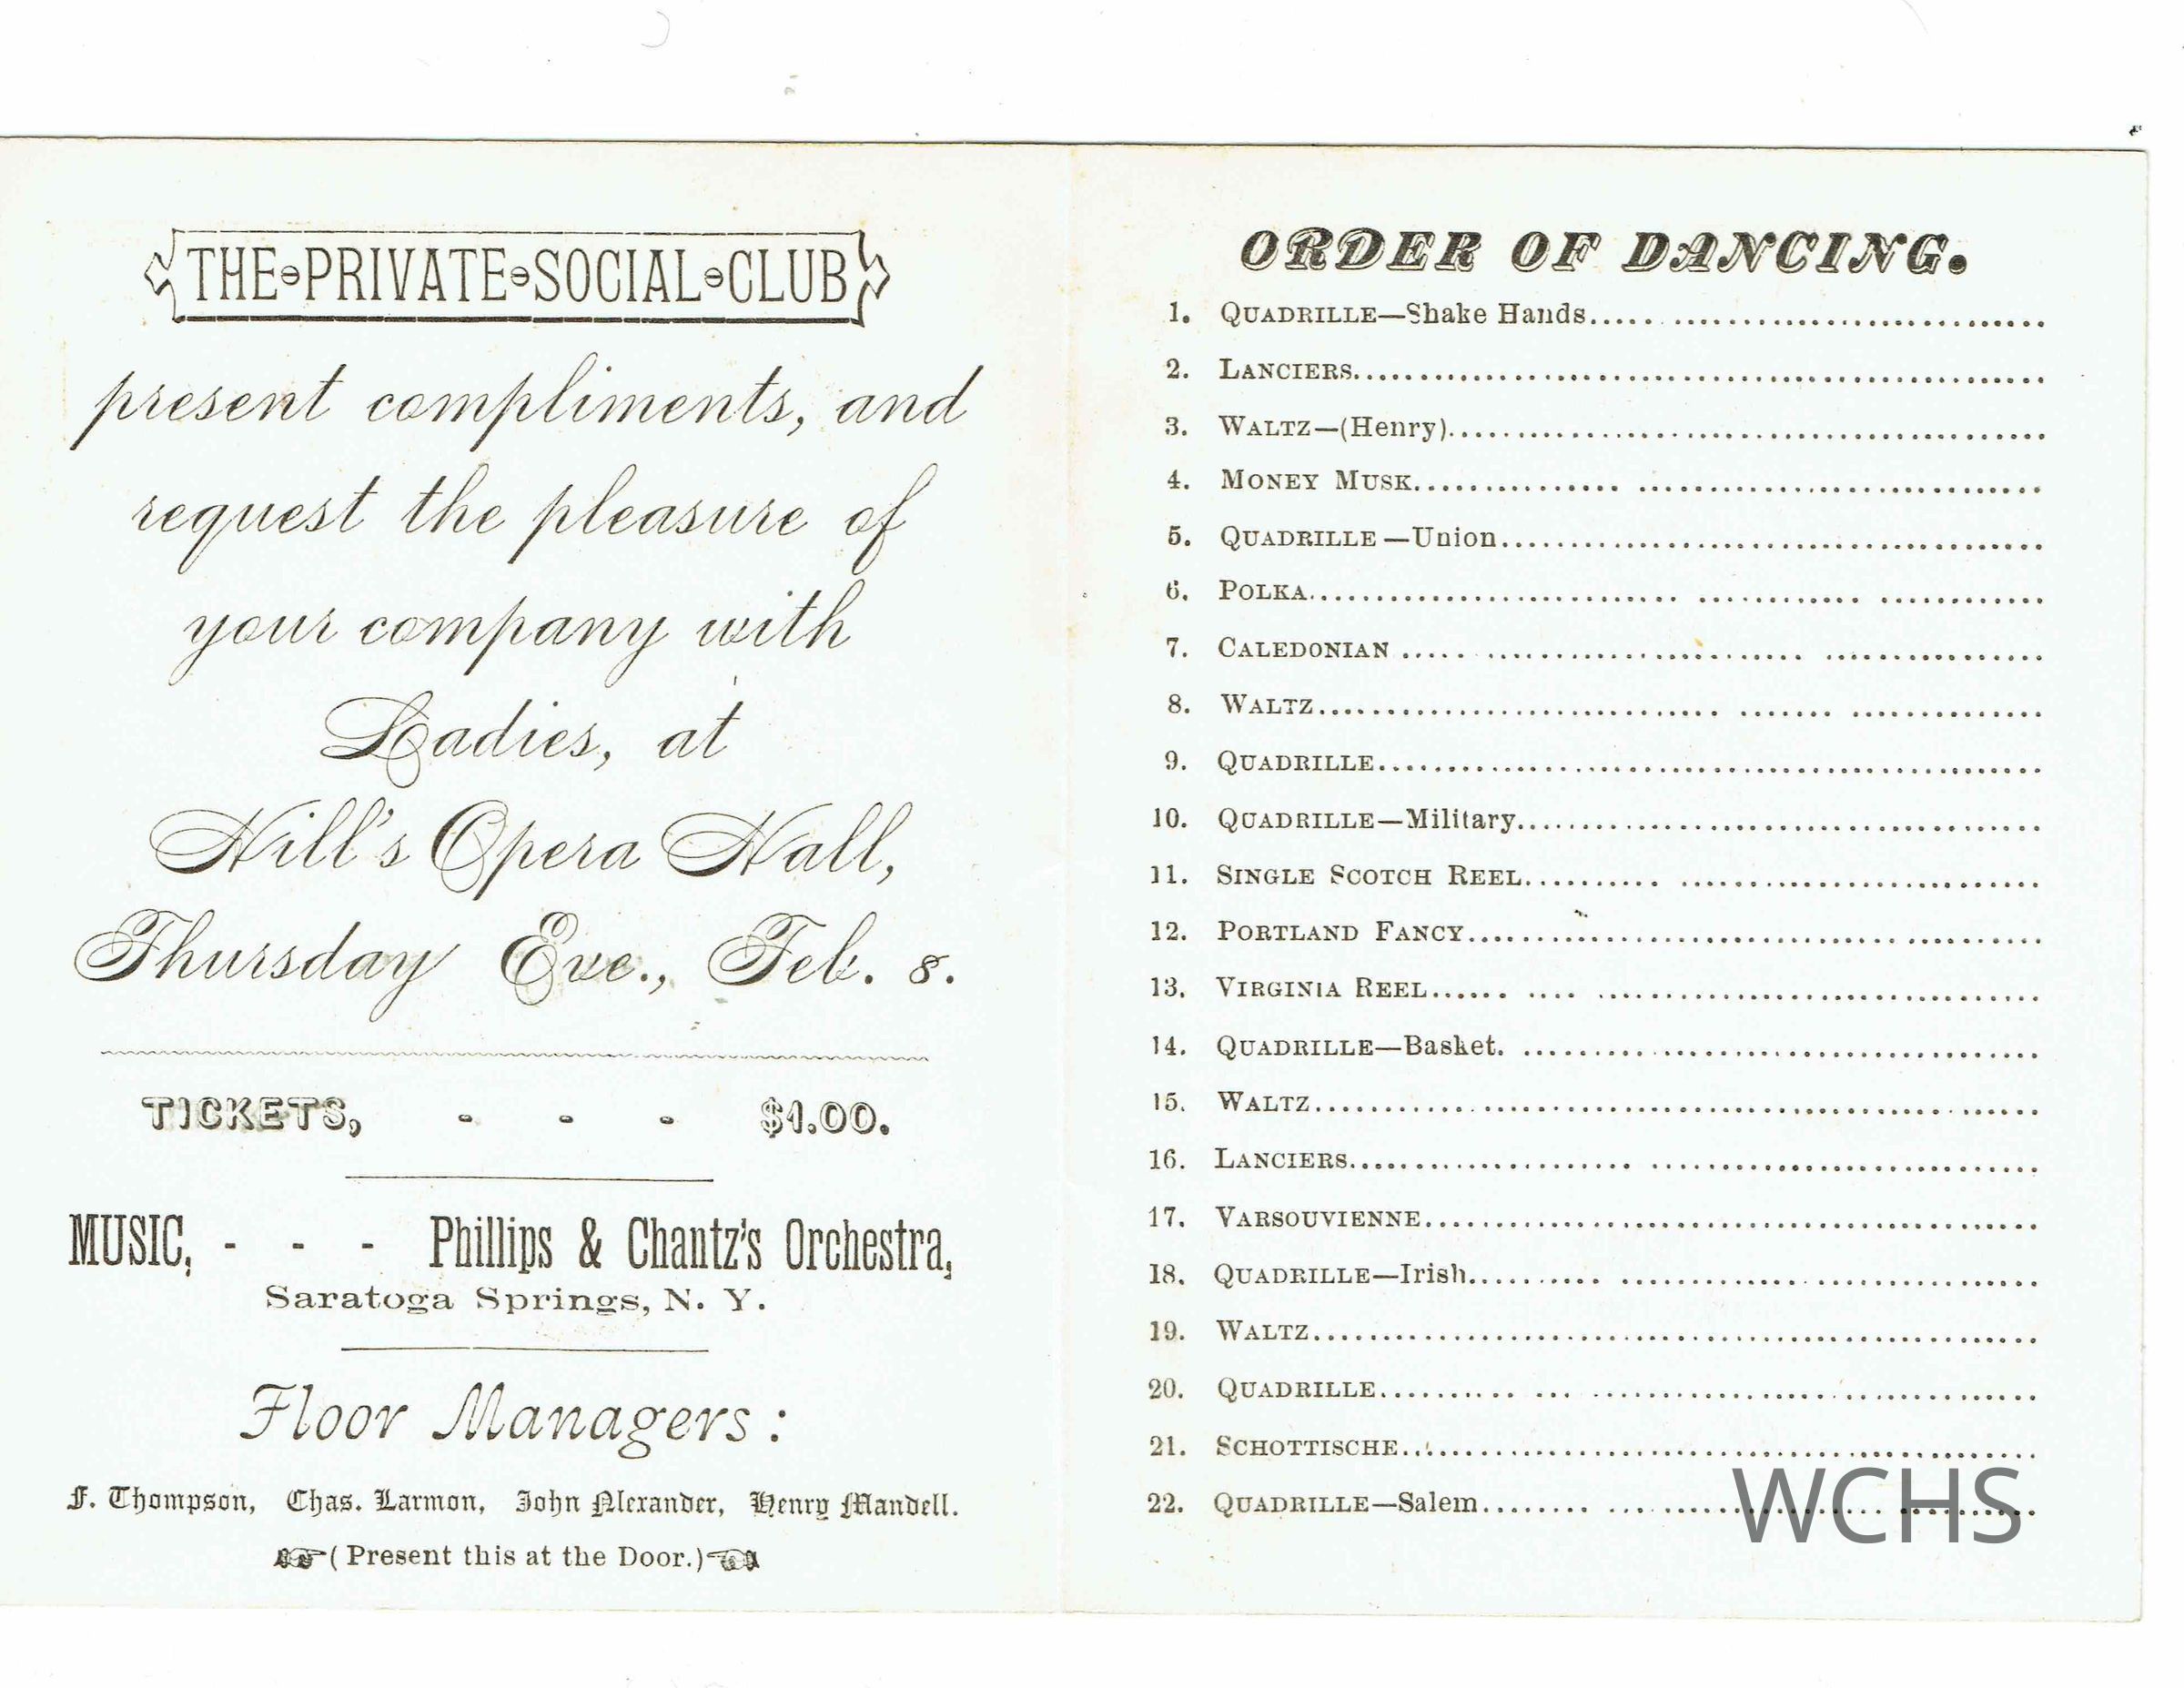 THE PRIVATE SOCIAL CLUB
present compliments, and
request the pleasure of
your company with
Ladies, at
Hill's Opera Hall,
Thursday Eve., Feb. 8.
TICKETS, - - - $1.00.
MUSIC, - - - Phillips & Chantz's Orchestra,
Saratoga Springs, N. Y.
Floor Managers:
F. Thompson, Chas. Larmon, John Alexander, Henry Mandell.
(Present this at the Door.)
ORDER OF DANCING.
1. QUADRILLE—Shake Hands
2. LANCIERS
3. WALTZ—(Henry)
4. MONEY MUSK
5. QUADRILLE—Union
6. POLKA
7. CALEDONIAN
8. WALTZ
9. QUADRILLE
10. QUADRILLE—Military
11. SINGLE SCOTCH REEL
12. PORTLAND FANCY
13. VIRGINIA REEL
14. QUADRILLE—Basket.
15. WALTZ
16. LANCIERS
17. VARSOUVIENNE
18. QUADRILLE—Irish
19. WALTZ
20. QUADRILLE
21. SCHOTTISCHE
22. QUADRILLE—Salem
WCHS